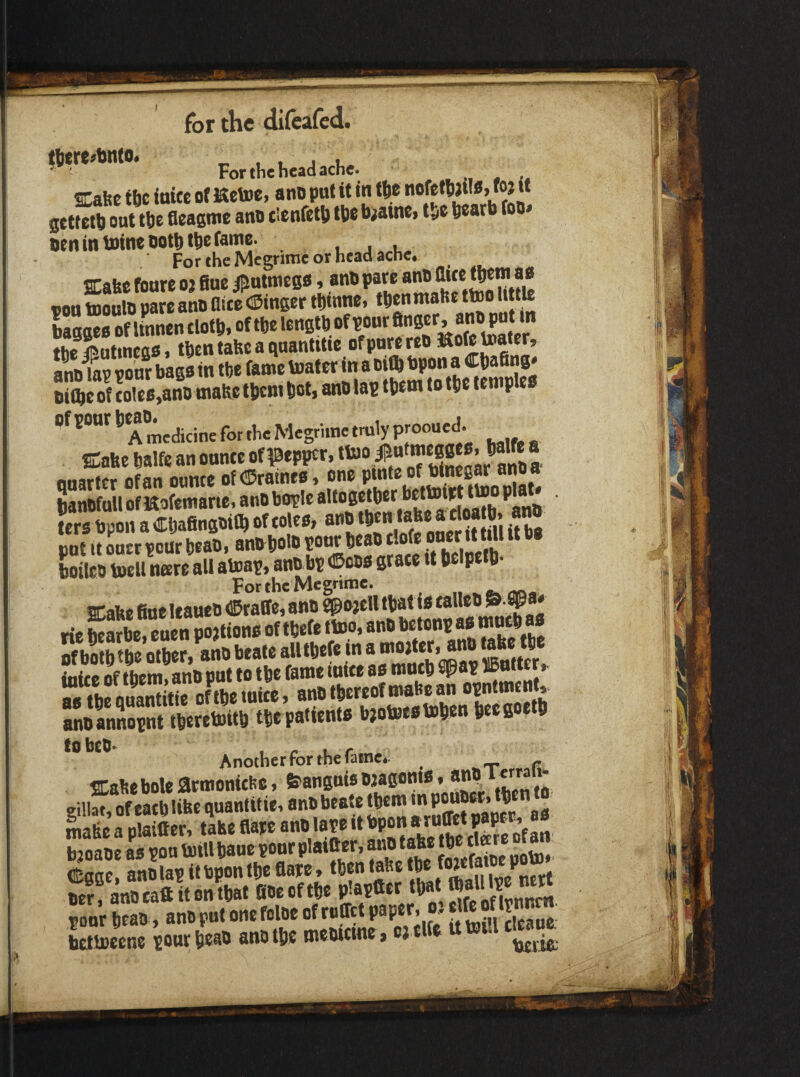 for the diseased.
there-vnto.
For the head ache.
Take the iuice of Rewe, and put it in the nosethrils, for it
getteth out the fleagme and clenseth the braine, the hearb sod-
den in wine doth the same.
For the Megrime or head ache.
Take foure or fiue Nutmegs, and pare and slice them as
you would pare and slice Ginger thinne, then make two little
bagges of linnen cloth, of the length of your finger, and put in
the Nutmegs, then take a quantitie of pure red Rose water,
and lay your bags in the same water in a dish vpon a Chafing-
dishe of coles, and make them hot, and lay them to the temples
of your head.
A medicine for the Megrime truly prooued.
Take halfe an ounce of Pepper, two Nutmegges, halfe a
quarter of an ounce of Graines, one pinte of vinegar and a
handfull of Rosemarie, and boyle altogether betwixt two plat-
ters vpon a Chafingdish of coles, and then take a cloath, and
put it ouer your head, and hold your head close ouer it till it be
boiled well neere all away, and by Gods grace it helpeth.
For the Megrime.
Take fiue leaued Grasse, and Morell that is called S. Ma-
rie hearbe, euen portions of these two, and betony as much as
of both the other, and beate all these in a morter, and take the
iuice of them, and put to the same iuice as much May Butter,
as the quantitie of the iuice, and thereof make an oyntment,
and annoynt therewith the patients browes when hee goeth
to bed.
Another for the same.
Take bole Armonicke, Sanguis dragonis, and Terrasi-
gillat, of each like quantitie, and beate them in pouder, then to
make a plaister, take flaxe and laye it vpon a russet paper, as
broade as you will haue your plaister, and take the cleere of an
Egge, and lay it vpon the flaxe, then take the foresaide pow-
der, and cast it on that side of the playster that shall lye next
your head, and put one folde of russet paper, or else of lynnen
betweene your head and the medicine, or else it will cleaue
verie